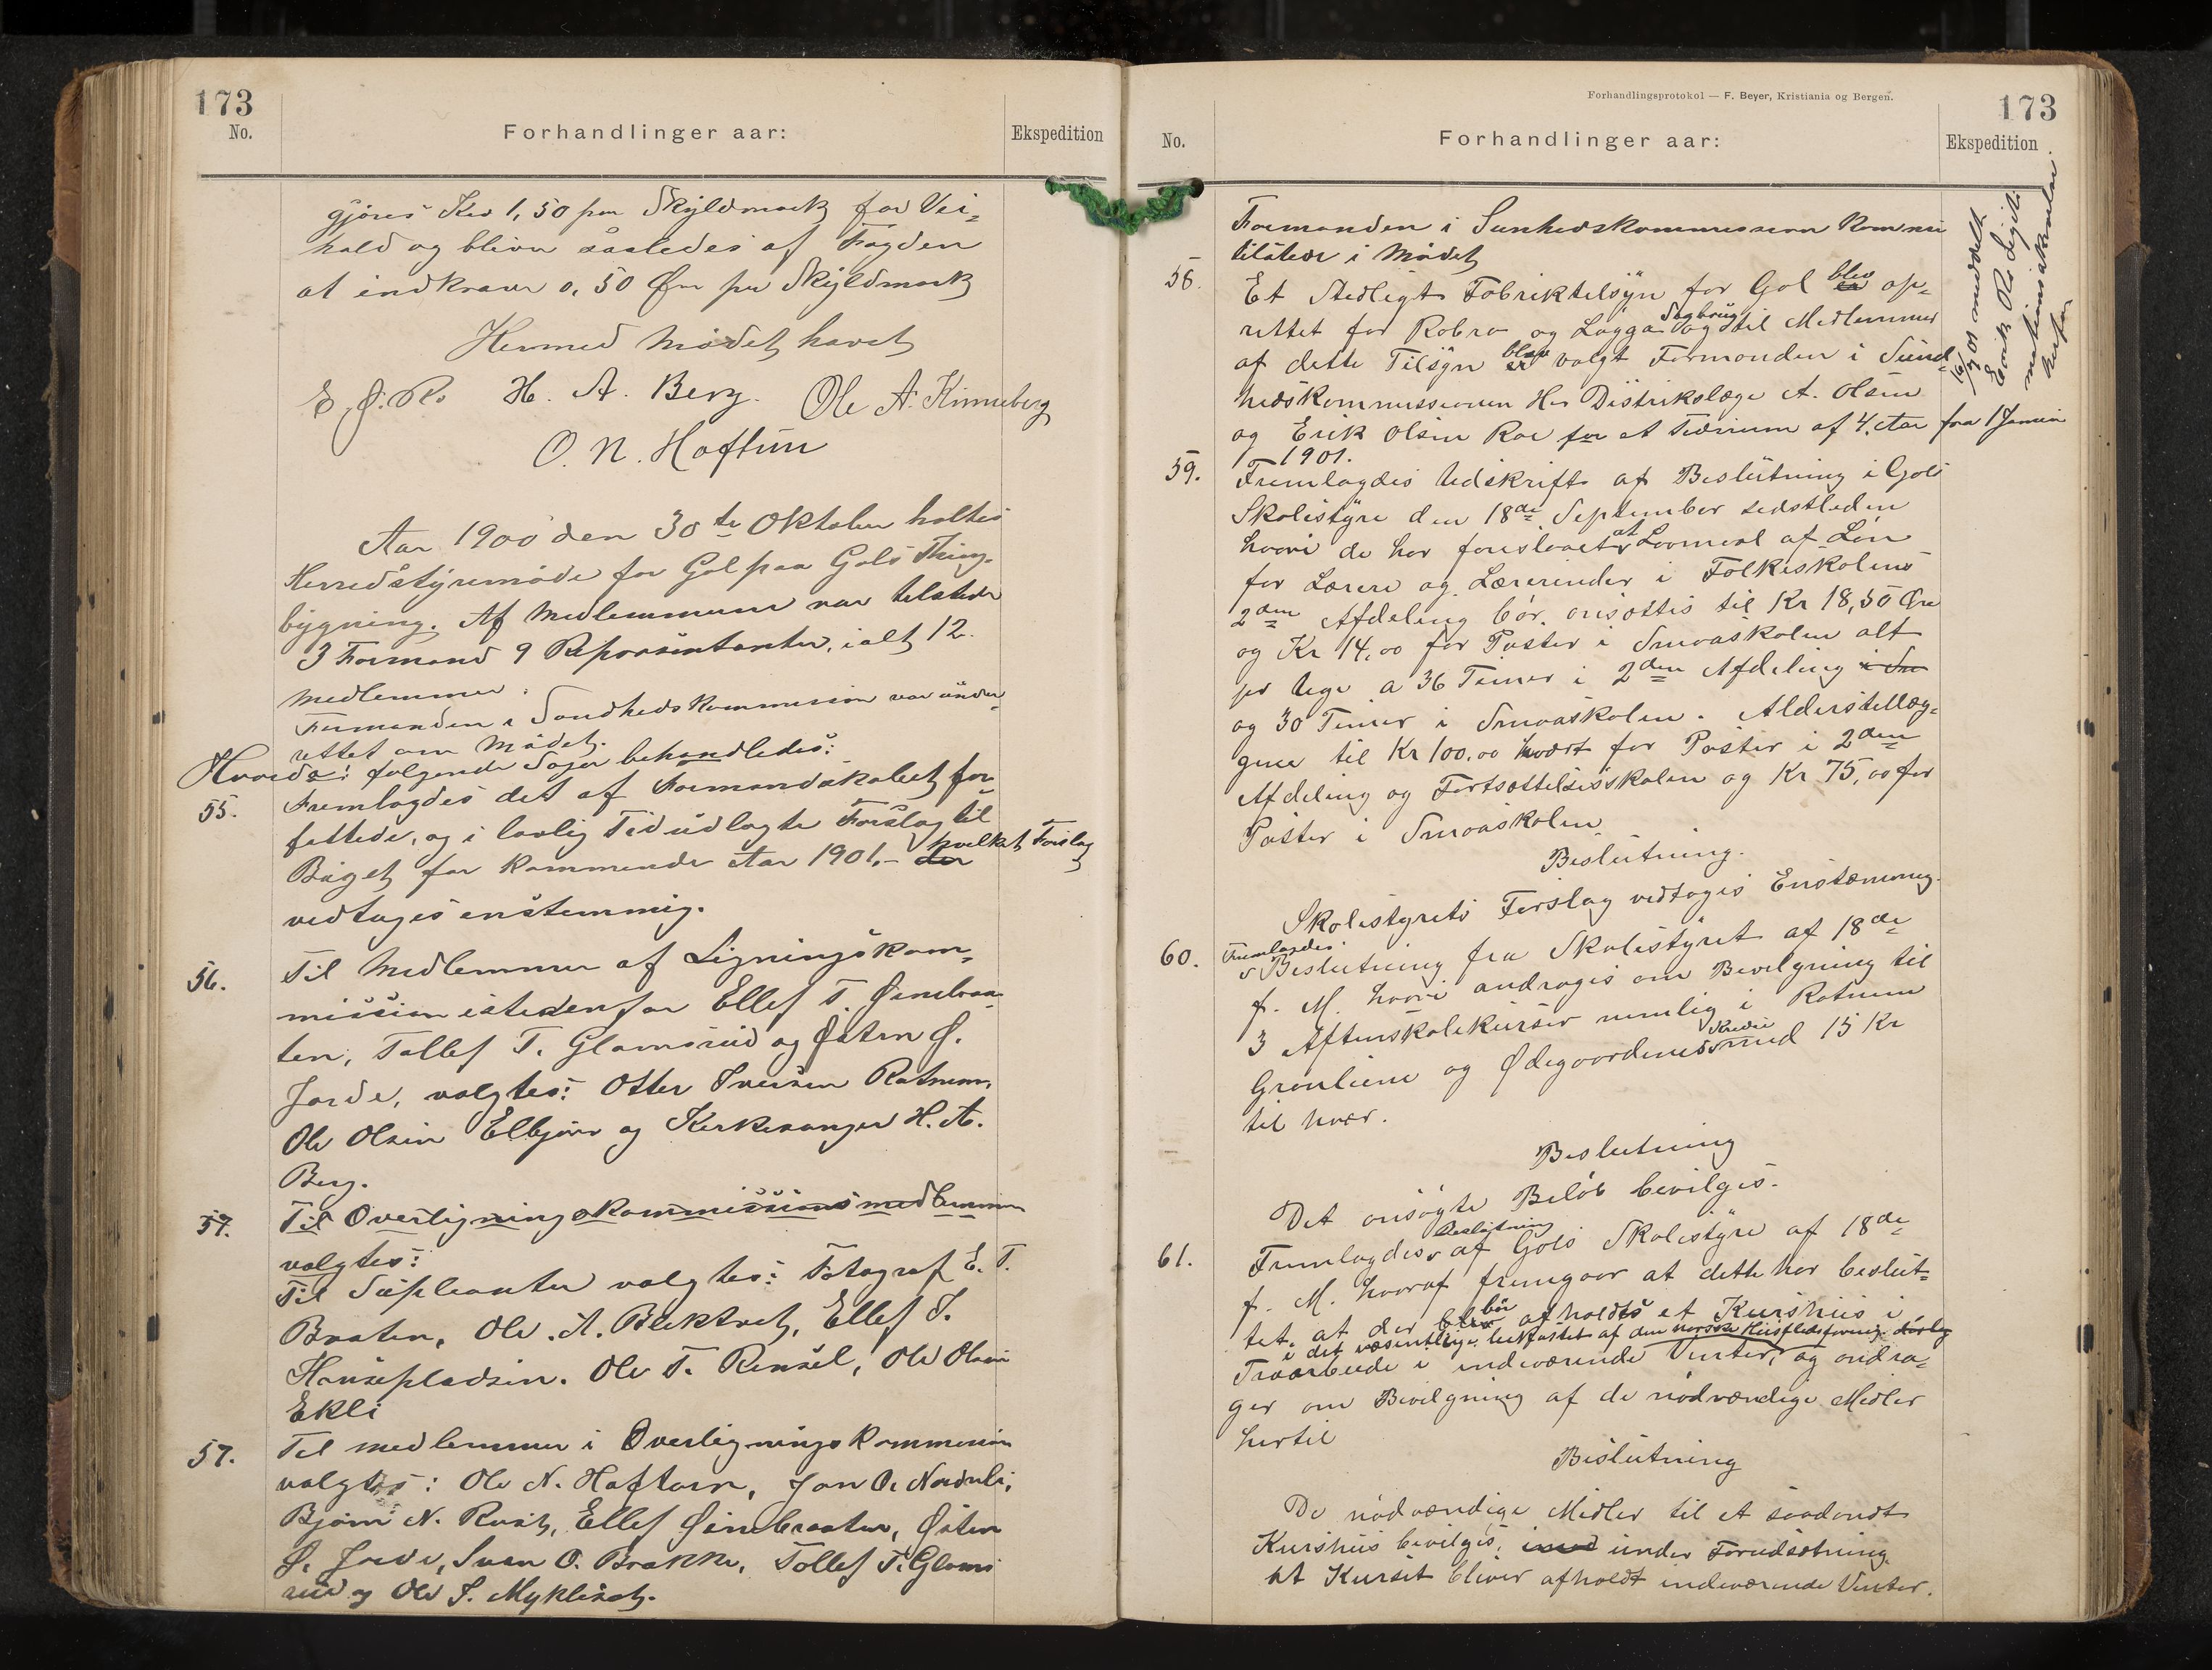 173
No.
Forhandlinger aar:
Ekspedition
gjøres Kro 1,50 per Skyldmark for Vei-
hold og bliver saaledes af Fogden
at indkræve 0,50 Øre per Skyldmark
Hermed Mødet hævet
E. J. Ro H. A. Berg. Ole A. Kinneberg
O. N. Hoftun
Aar 1900 den 30te Oktober holdtes
Herredstyremøde for Gol paa Gols Thing-
bygning. Af Medlemmerne var tilstede
3 Formænd 9 Repræsentanter, ialt 12
Medlemmer.
Formanden i Sundhedskommission var under-
rettet om Mødet.
Hvorda: følgende Sager behandledes:
55. Fremlagdes det af Formandskabet for-
fattede, og i lovlig Tid udlagte Forslag til
Buget for kommende Aar 1901,- der hvilket Forslag
vedtages enstemmig.
56. Til Medlemmer af Ligningskom-
mission istedenfor Ellef T. Øinebraa-
ten, Tollef T. Glamsrud og Østen Ø.
Jorde, valgtes: Otter Iversen Rotneim,
Ole Olsen Elbjørr og Kirkesanger H. A.
Berg.
57. Til Overligningskommissionsmedlemmer
valgtes:
Til Supleanter valgtes: Fotograf E. T.
Braaten, Ole A. Bæktveit, Ellef I.
Hansepladsen. Ole T. Rensel, Ole Olsen
Ekli
57. Til medlemmer i Overligningskommission
valgtes: Ole N. Hoftun, Jon O. Norduli,
Bjørn N. Rust, Ellef Øinebraaten, Østen
Ø. Jorde, Sven O. Brakke, Tollef T. Glams
rud og Ole S. Myklset.
Forhandlingsprotokol — F. Beyer, Kristiania og Bergen.
173
No.
Forhandlinger aar:
Ekspedition
Formanden i Sunhedskommissionen kom nu
tilstede i Mødet
58. Et stedligt Fabriktilsyn for Gol er blev op-
rettet for Robro og Løgga Sagbrug og til Medlemmer
af dette Tilsyn er blev valgt Formanden i Sund-
hedskommissionen Hr Distrikslæge A. Olsen
og Erik Olsen Roe for et Tidsrum af 4 Aar fra 1 Januar
1901.
16/7 01 meddelt
Erik Ro Ligita
mationsskrivelse
herfor
59. Fremlagdes Udskrift af Beslutning i Gols
Skolestyre den 18de September sidstleden
hvori de har foreslaaet at Lovmal af Løn
for Lærere og Lærerinder i Folkeskolens
2den Afdeling bør ansættes til Kr 18,50 Øre
og Kr 14,00 for Poster i Smaaskolen alt
pr Uge a 36 Timer i 2den Afdeling i Sm
og 30 Timer i Smaaskolen. Alderstillæg-
gene til Kr 100,00 hvert for Poster i 2den
Afdeling og Fortsættelsesskolen og Kr 75,00 for
Poster i Smaaskolen
Beslutning.
Skolestyrets Forslag vedtages Enstemmig.
60. Fremlagdes
Beslutning fra Skolestyret af 18de
f. M. hvori andrages om Bevilgning til
3 Aftenskolekurser nemlig i Rotneim
Grønliene og Ødegaardenes Kredse med 15 Kr
til hver.
Beslutning
Det ansøgte Beløb bevilges.
61. Fremlagdes Beslutning af Gols Skolestyre af 18de
f. M. hvoraf fremgaar at dette har beslut-
tet, at der blev bør afholdes et Kurshus i
i det væsentlige bekostet af den norske Husflidsforening
Træarbeide i indeværende Vinter, og andra-
ger om Bevilgning af de nødvendige Midler
hertil
Beslutning
De nødvændige Midler til et saadandt
Kurshus bevilges, imod under Forudsætning
at Kurset bliver afholdt indeværende Vinter.